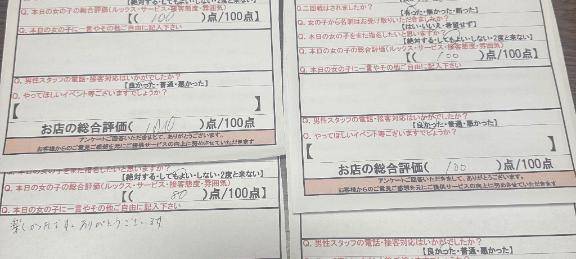 【絶対する・してもよい・しない・2度と来ない】
Q. 本日の女の子の総合評価(ルックス・サービス・接客態度・雰囲気)
【( 100 )点/100点】
Q. 本日の女の子に一言やその他ご自由に記入下さい
Q. 男性スタッフの電話・接客対応はいかがでしたか？
【良かった・普通・悪かった】
Q. やってほしいイベント等ございますでしょうか？
【 】
お店の総合評価( 100 )点/100点
アンケートご回答いただきまして、ありがとうございます。
お客様からのご意見ご感想を元にご提供サービスの向上に努めさせていただきます
【絶対する・してもよい・しない・2度と来ない】
Q. 本日の女の子の総合評価(ルックス・サービス・接客態度・雰囲気)
【( 80 )点/100点】
Q. 本日の女の子に一言やその他ご自由に記入下さい
楽しかったです。ありがとうございます
Q. 女の子から名刺はお受け取りいただきましたか？
【はい・いいえ・希望せず】
Q. 本日の女の子をまた指名したいと思いますか？
【絶対する・してもよい・しない・2度と来ない】
Q. 本日の女の子の総合評価(ルックス・サービス・接客態度・雰囲気)
【( 100 )点/100点】
Q. 本日の女の子に一言やその他ご自由に記入下さい
Q. 男性スタッフの電話・接客対応はいかがでしたか？
【良かった・普通・悪かった】
Q. やってほしいイベント等ございますでしょうか？
【 】
お店の総合評価( 100 )点/100点
アンケートご回答いただきまして、ありがとうございます。
お客様からのご意見ご感想を元にご提供サービスの向上に努めさせていただきます
Q. 男性スタッフの電話・接客対応はいかがでしたか？
【良かった・普通・悪かった】